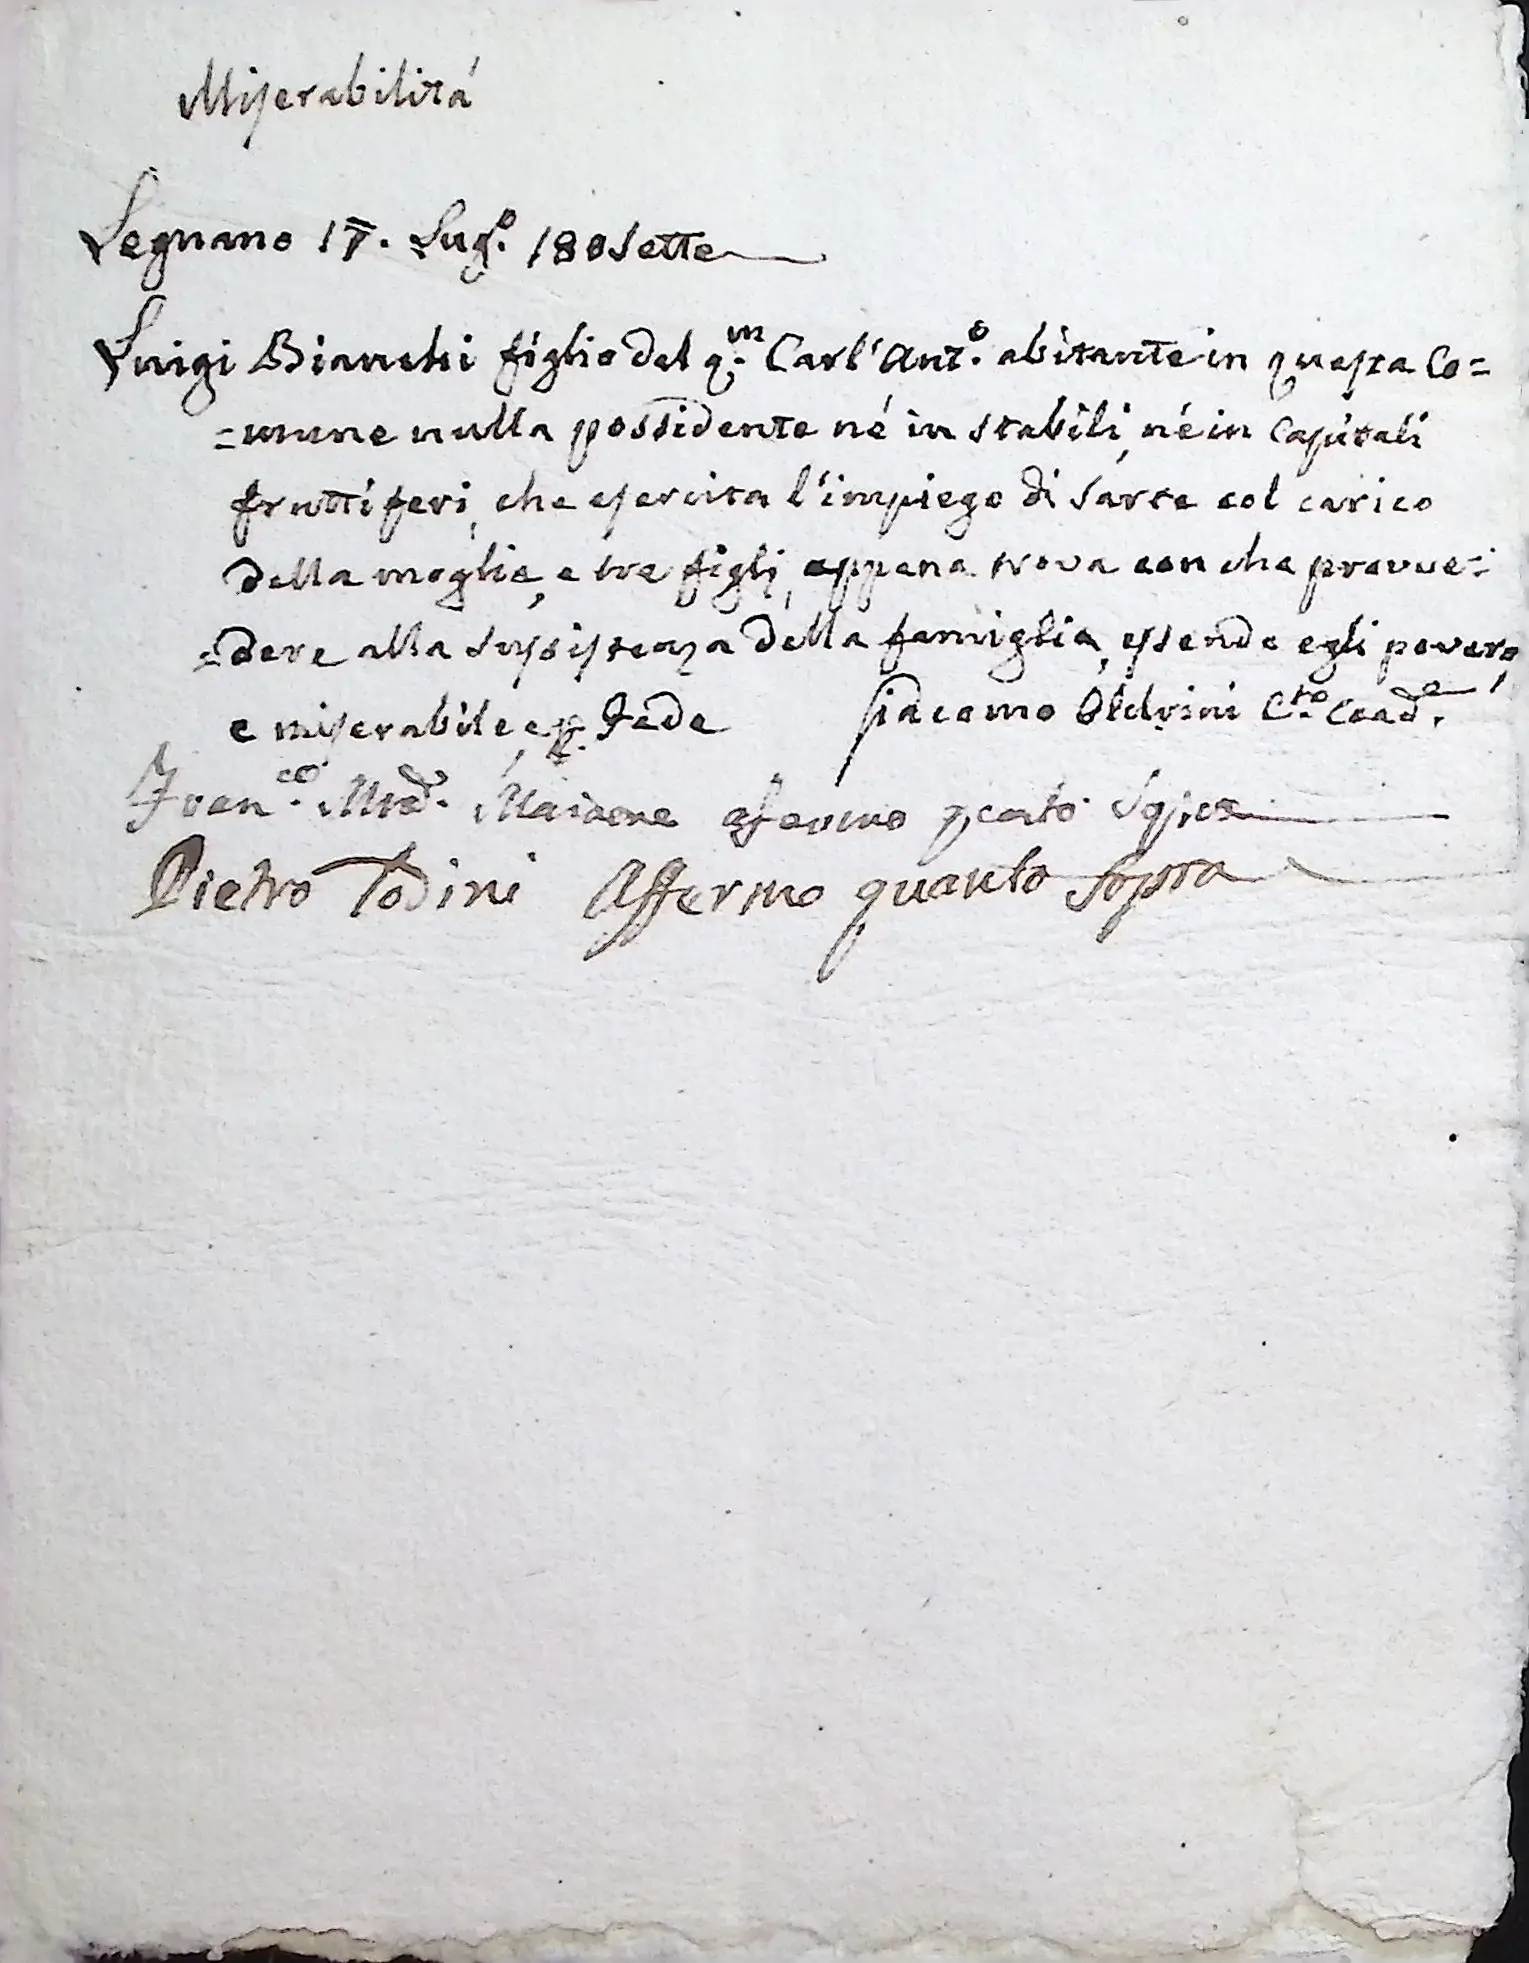 Miserabilitá
Legnano 17. Lug.o 180sette
Luigi Bianchi figlio del q.m Carl'Ant.o abitante in questa Co=
=mune nulla possidente né in stabili, né in Capitali
fruttiferi, che esercita l'impiego di Sarte col carico
della moglie, e tre figli, appena trova con che provve=
=dere alla sussistenza della famiglia, essendo egli povero,
e miserabile, e p. Fede Giacomo Oldrini C.to Coad.e
Fran.co Ma
Pietro Todini Affermo quanto Sopra